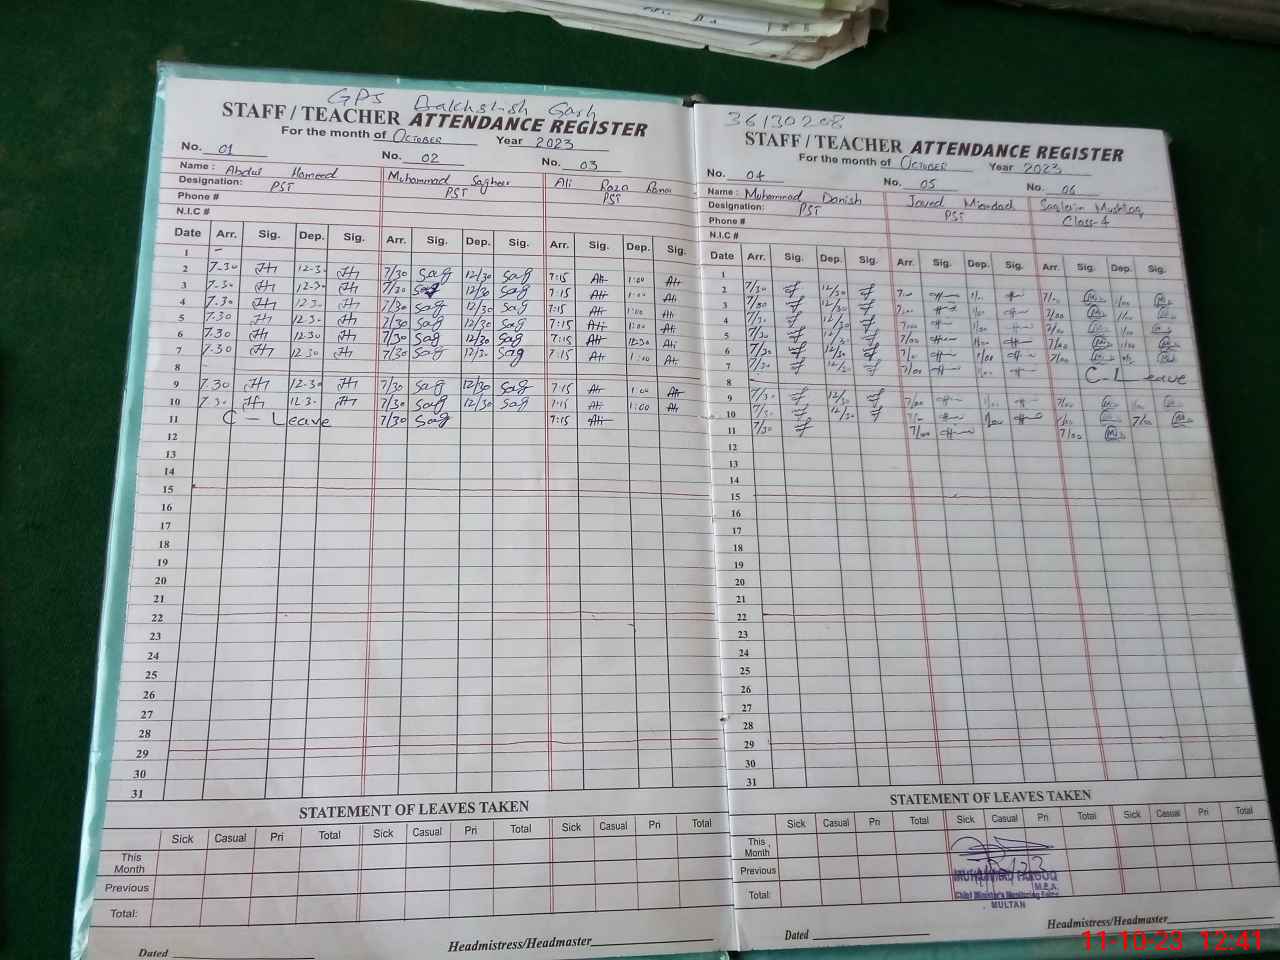 GPS
STAFF / TEACHER ATTENDANCE REGISTER
For the month of October Year 2023
No. 01 No. 02 No. 03
Name : Abdul Hameed Muhammad Sagheer Ali Raza Rana
Designation: PST PST PST
Phone #
N.I.C #
Date Arr. Sig. Dep. Sig. Arr. Sig. Dep. Sig. Arr. Sig. Dep. Sig.
1 -
2 7-30 12-30 7/30 Sag 12/30 Sag 7:15 1:00
3 7-30 12-30 7/30 Sag 12/30 Sag 7:15 1:00
4 7.30 12.30 7/30 Sag 12/30 Sag 7:15 1:00
5 7.30 12.30 7/30 Sag 12/30 Sag 7:15 1:00
6 7.30 12.30 7/30 Sag 12/30 Sag 7:15 12:30
7 7.30 12.30 7/30 Sag 12/30 Sag 7:15 1:00
8 -
9 7.30 12-30 7/30 Sag 12/30 Sag 7:15 1:00
10 7.30 12.30 7/30 Sag 12/30 Sag 7:15 1:00
11 C - Leave 7/30 Sag 7:15
12
13
14
15
16
17
18
19
20
21
22
23
24
25
26
27
28
29
30
31
STATEMENT OF LEAVES TAKEN
Sick Casual Pri Total Sick Casual Pri Total Sick Casual Pri Total
This Month
Previous
Total:
Dated Headmistress/Headmaster
36130208
STAFF / TEACHER ATTENDANCE REGISTER
For the month of October Year 2023
No. 04 No. 05 No. 06
Name : Muhammad Danish Javed Miandad Saqlain Mushtaq
Designation: PST PST Class-4
Phone #
N.I.C #
Date Arr. Sig. Dep. Sig. Arr. Sig. Dep. Sig. Arr. Sig. Dep. Sig.
1
2 7/30 12/30
3 7/30 12/30
4 7/30 12/30
5 7/30 12/30
6 7/30 12/30
7 7/30 12/30 C-Leave
8
9 7/30 12/30
10 7/30 12/30
11 7/30 7/00 7/00
12
13
14
15
16
17
18
19
20
21
22
23
24
25
26
27
28
29
30
31
STATEMENT OF LEAVES TAKEN
Sick Casual Pri Total Sick Casual Pri Total Sick Casual Pri Total
This Month
Previous
Total:
M.E.A.
MULTAN
Dated Headmistress/Headmaster
11-10-23 12:41